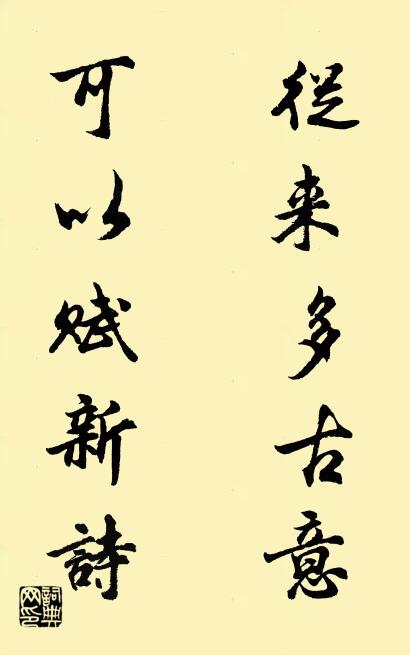 從来多古意
可以赋新詩
詞典网印